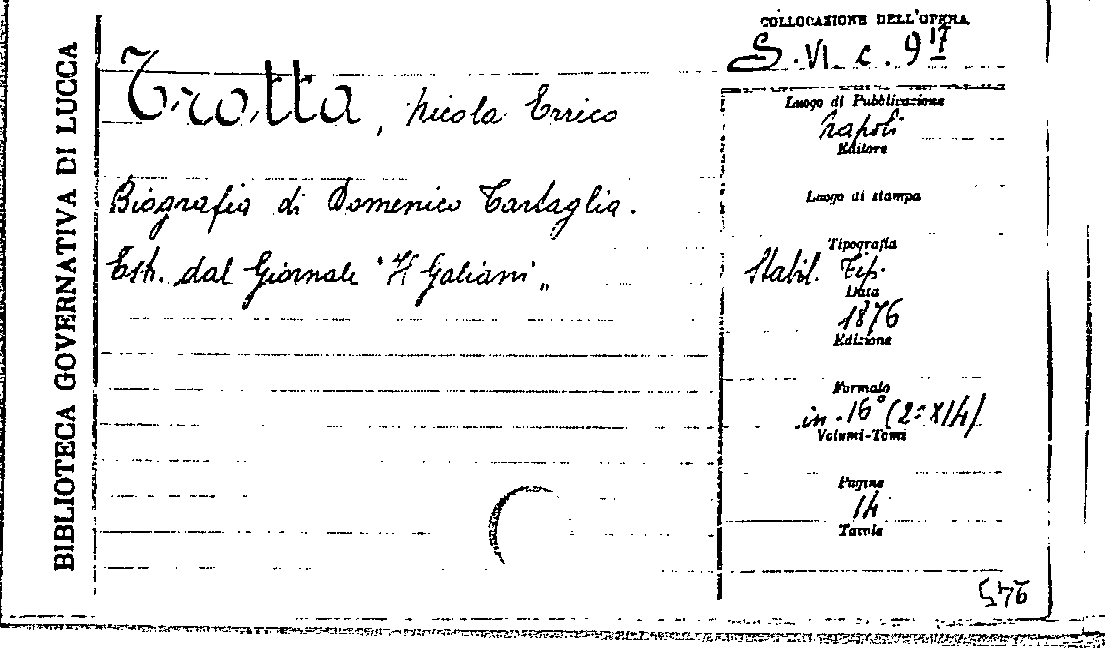 BIBLIOTECA GOVERNATIVA DI LUCCA
COLLOCAZIONE DELL'OPERA
S. VI. c. 9 17
Trotta, Nicola Errico
Biografia di Domenico Tartaglia.
Estr. dal Giornale "Il Galiani"
Luogo di Pubblicazione
Napoli
Editore
Luogo di stampa
Tipografia
Stabil. Tip.
Data
1876
Edizione
Formato
in-16°
Volumi-Tomi
Pagine
14
Tavole
576